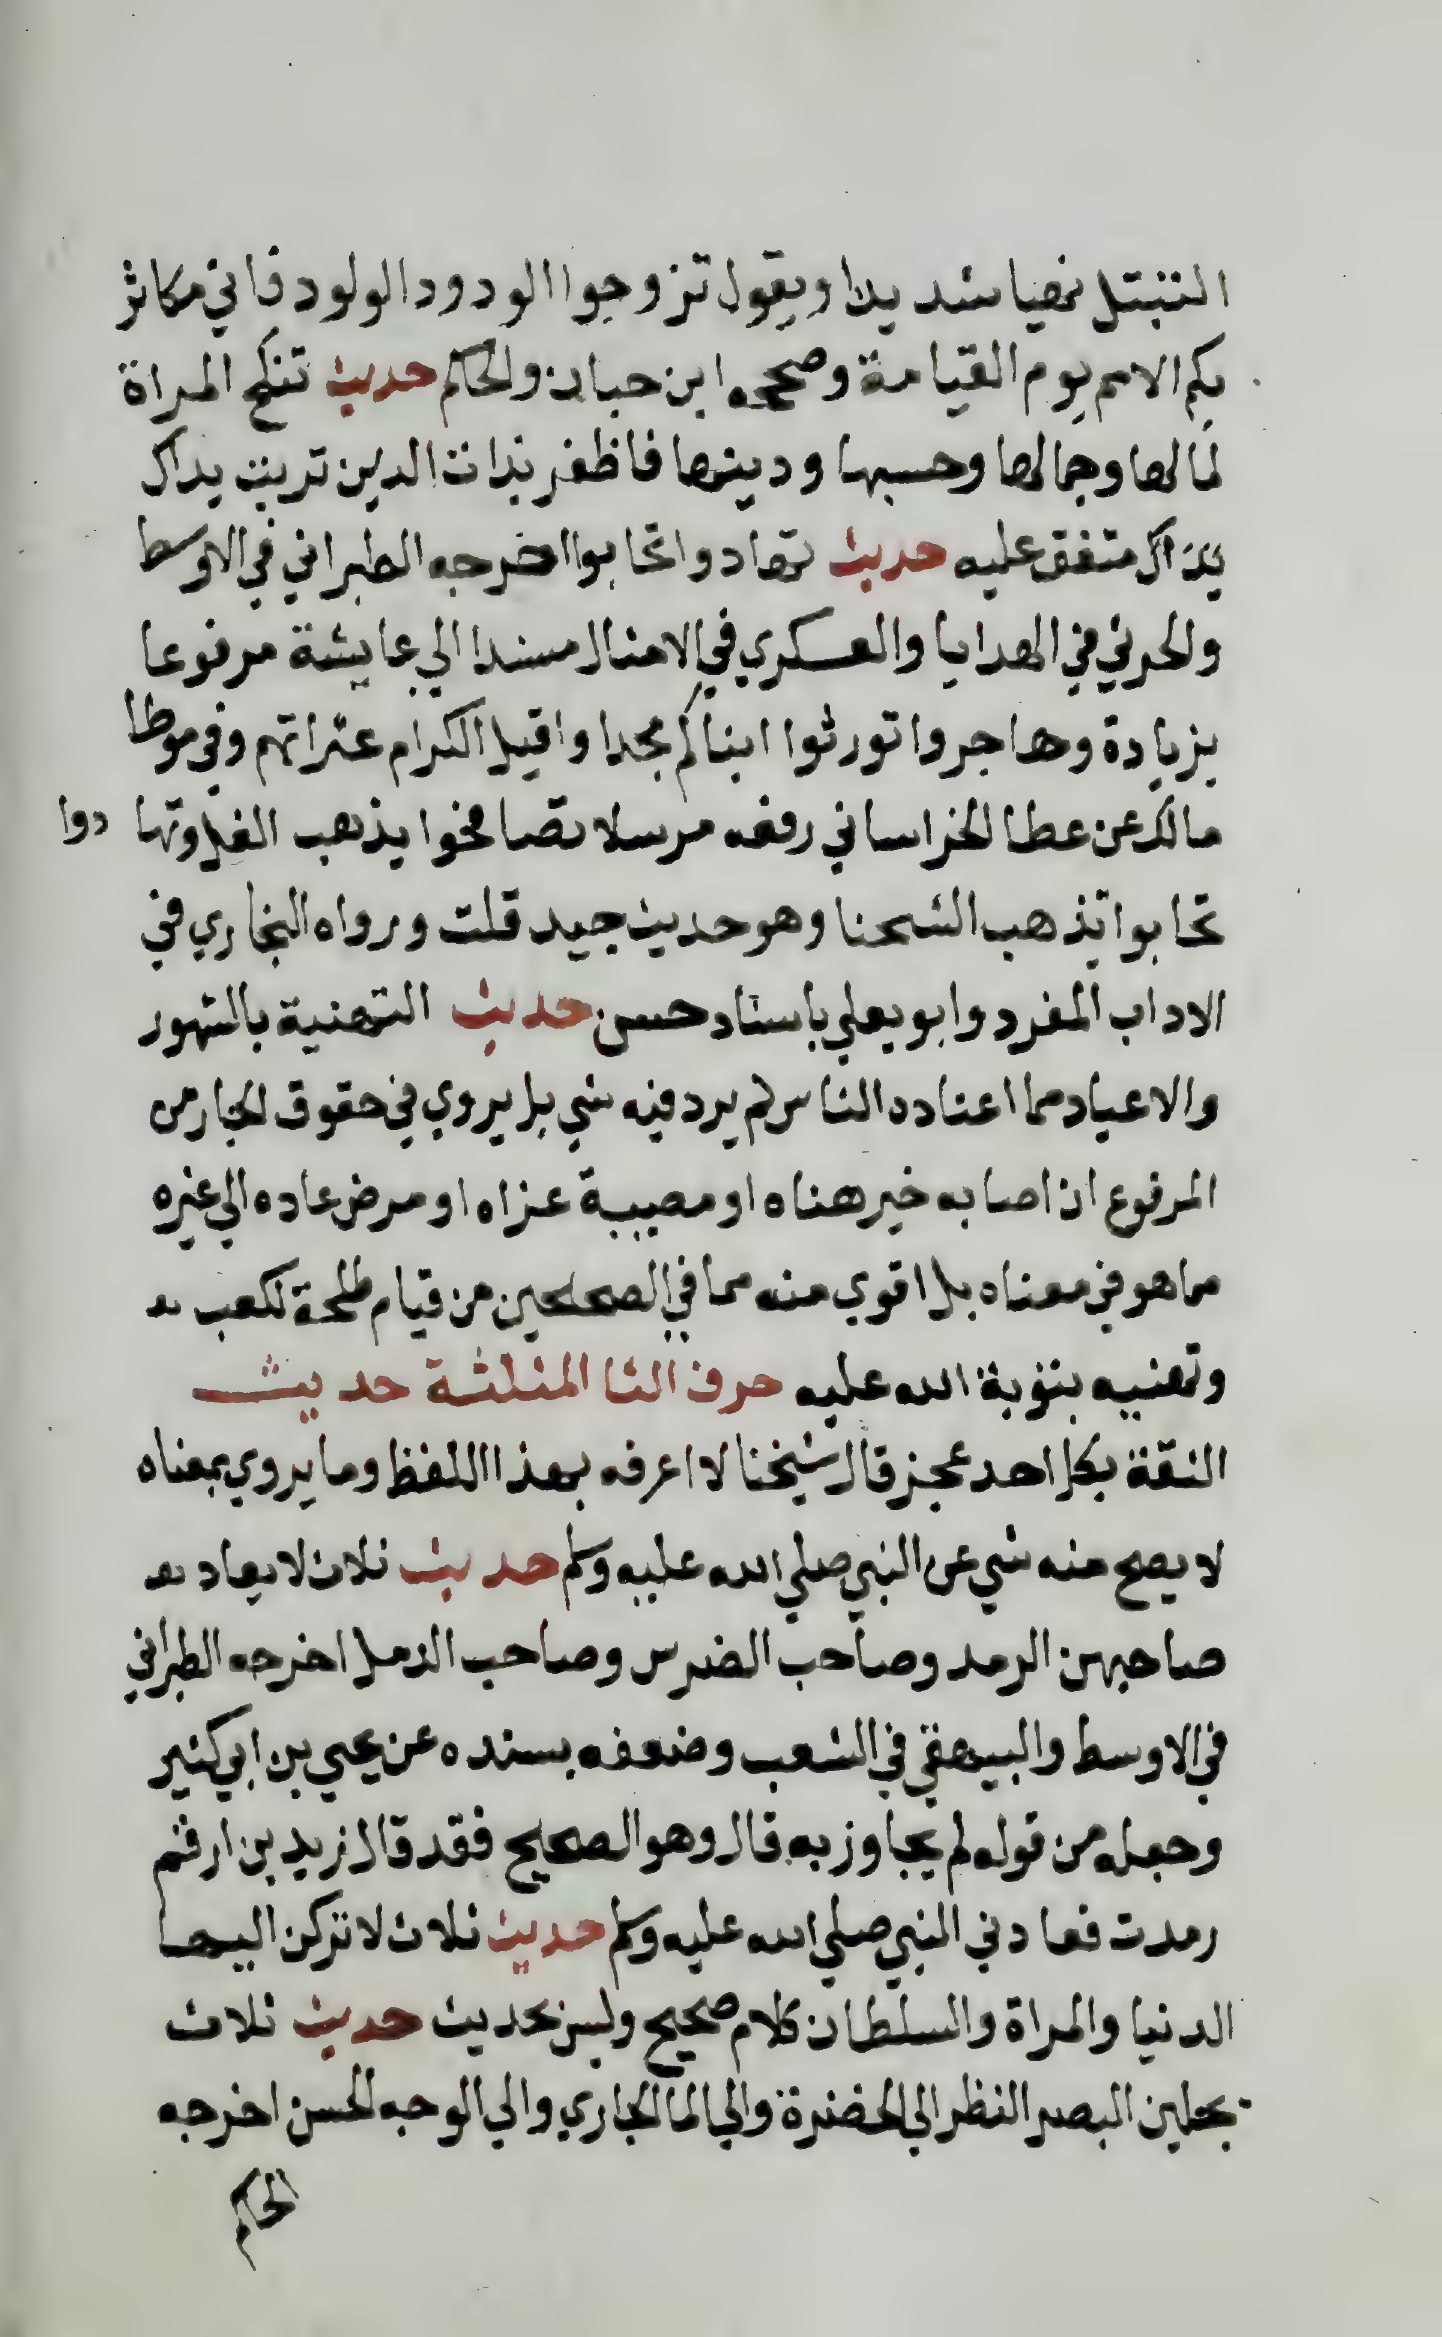 التبتل نهيا شديدا ويقول تزوجوا الودود الولود فاني مكاثر
بكم الامم يوم القيامة وصححه ابن حبان والحاكم حديث تنكح المراة
لمالها وجمالها وحسبها ودينها فاظفر بذات الدين تربت يداك
يداك متفق عليه حديث تهادوا تحابوا اخرجه الطبراني في الاوسط
والحربي في الهدايا والعسكري في الامثال مسندا الي عايشة مرفوعا
بزيادة وهاجروا تورثوا ابناكم مجدا واقيلوا الكرام عثراتهم وفي موطا
مالك عن عطا الخراساني رفعه مرسلا تصافحوا يذهب الغل وتها دوا
تحابوا تذهب الشحنا وهو حديث جيد قلت ورواه البخاري في
الاداب المفرد وابو يعلي باسناد حسن حديث التهنية بالشهور
والاعياد مما اعتاده الناس لم يرد فيه شي بل يروي في حقوق الجار من
المرفوع ان اصابه خير هناه او مصيبة عزاه او مرض عاده الي غيره
مما هو في معناه بل اقوي منه مما في الصحيحين من قيام طلحة لكعب
وتهنيه بتوبة الله عليه حرف الثا المثلثة حديث
الثقة بكل احد عجز قال شيخنا لا اعرفه بهذا اللفظ وما يروي بمعناه
لا يصح منه شي عن النبي صلي الله عليه وسلم حديث ثلاث لا يعاد
صاحبهن الرمد وصاحب الضرس وصاحب الدمل اخرجه الطبراني
في الاوسط والبيهقي في الشعب وضعفه بسنده عن يحيي بن ابي كثير
وجعله من قوله لم يجاوز به قال وهو الصحيح فقد قال زيد بن ارقم
رمدت فعادني النبي صلي الله عليه وسلم حديث ثلاث لا تركن اليها
الدنيا والمراة والسلطان كلام صحيح وليس بحديث حديث ثلاث
يجلين البصر النظر الي الخضرة والي الما الجاري والي الوجه الحسن اخرجه
الحاكم